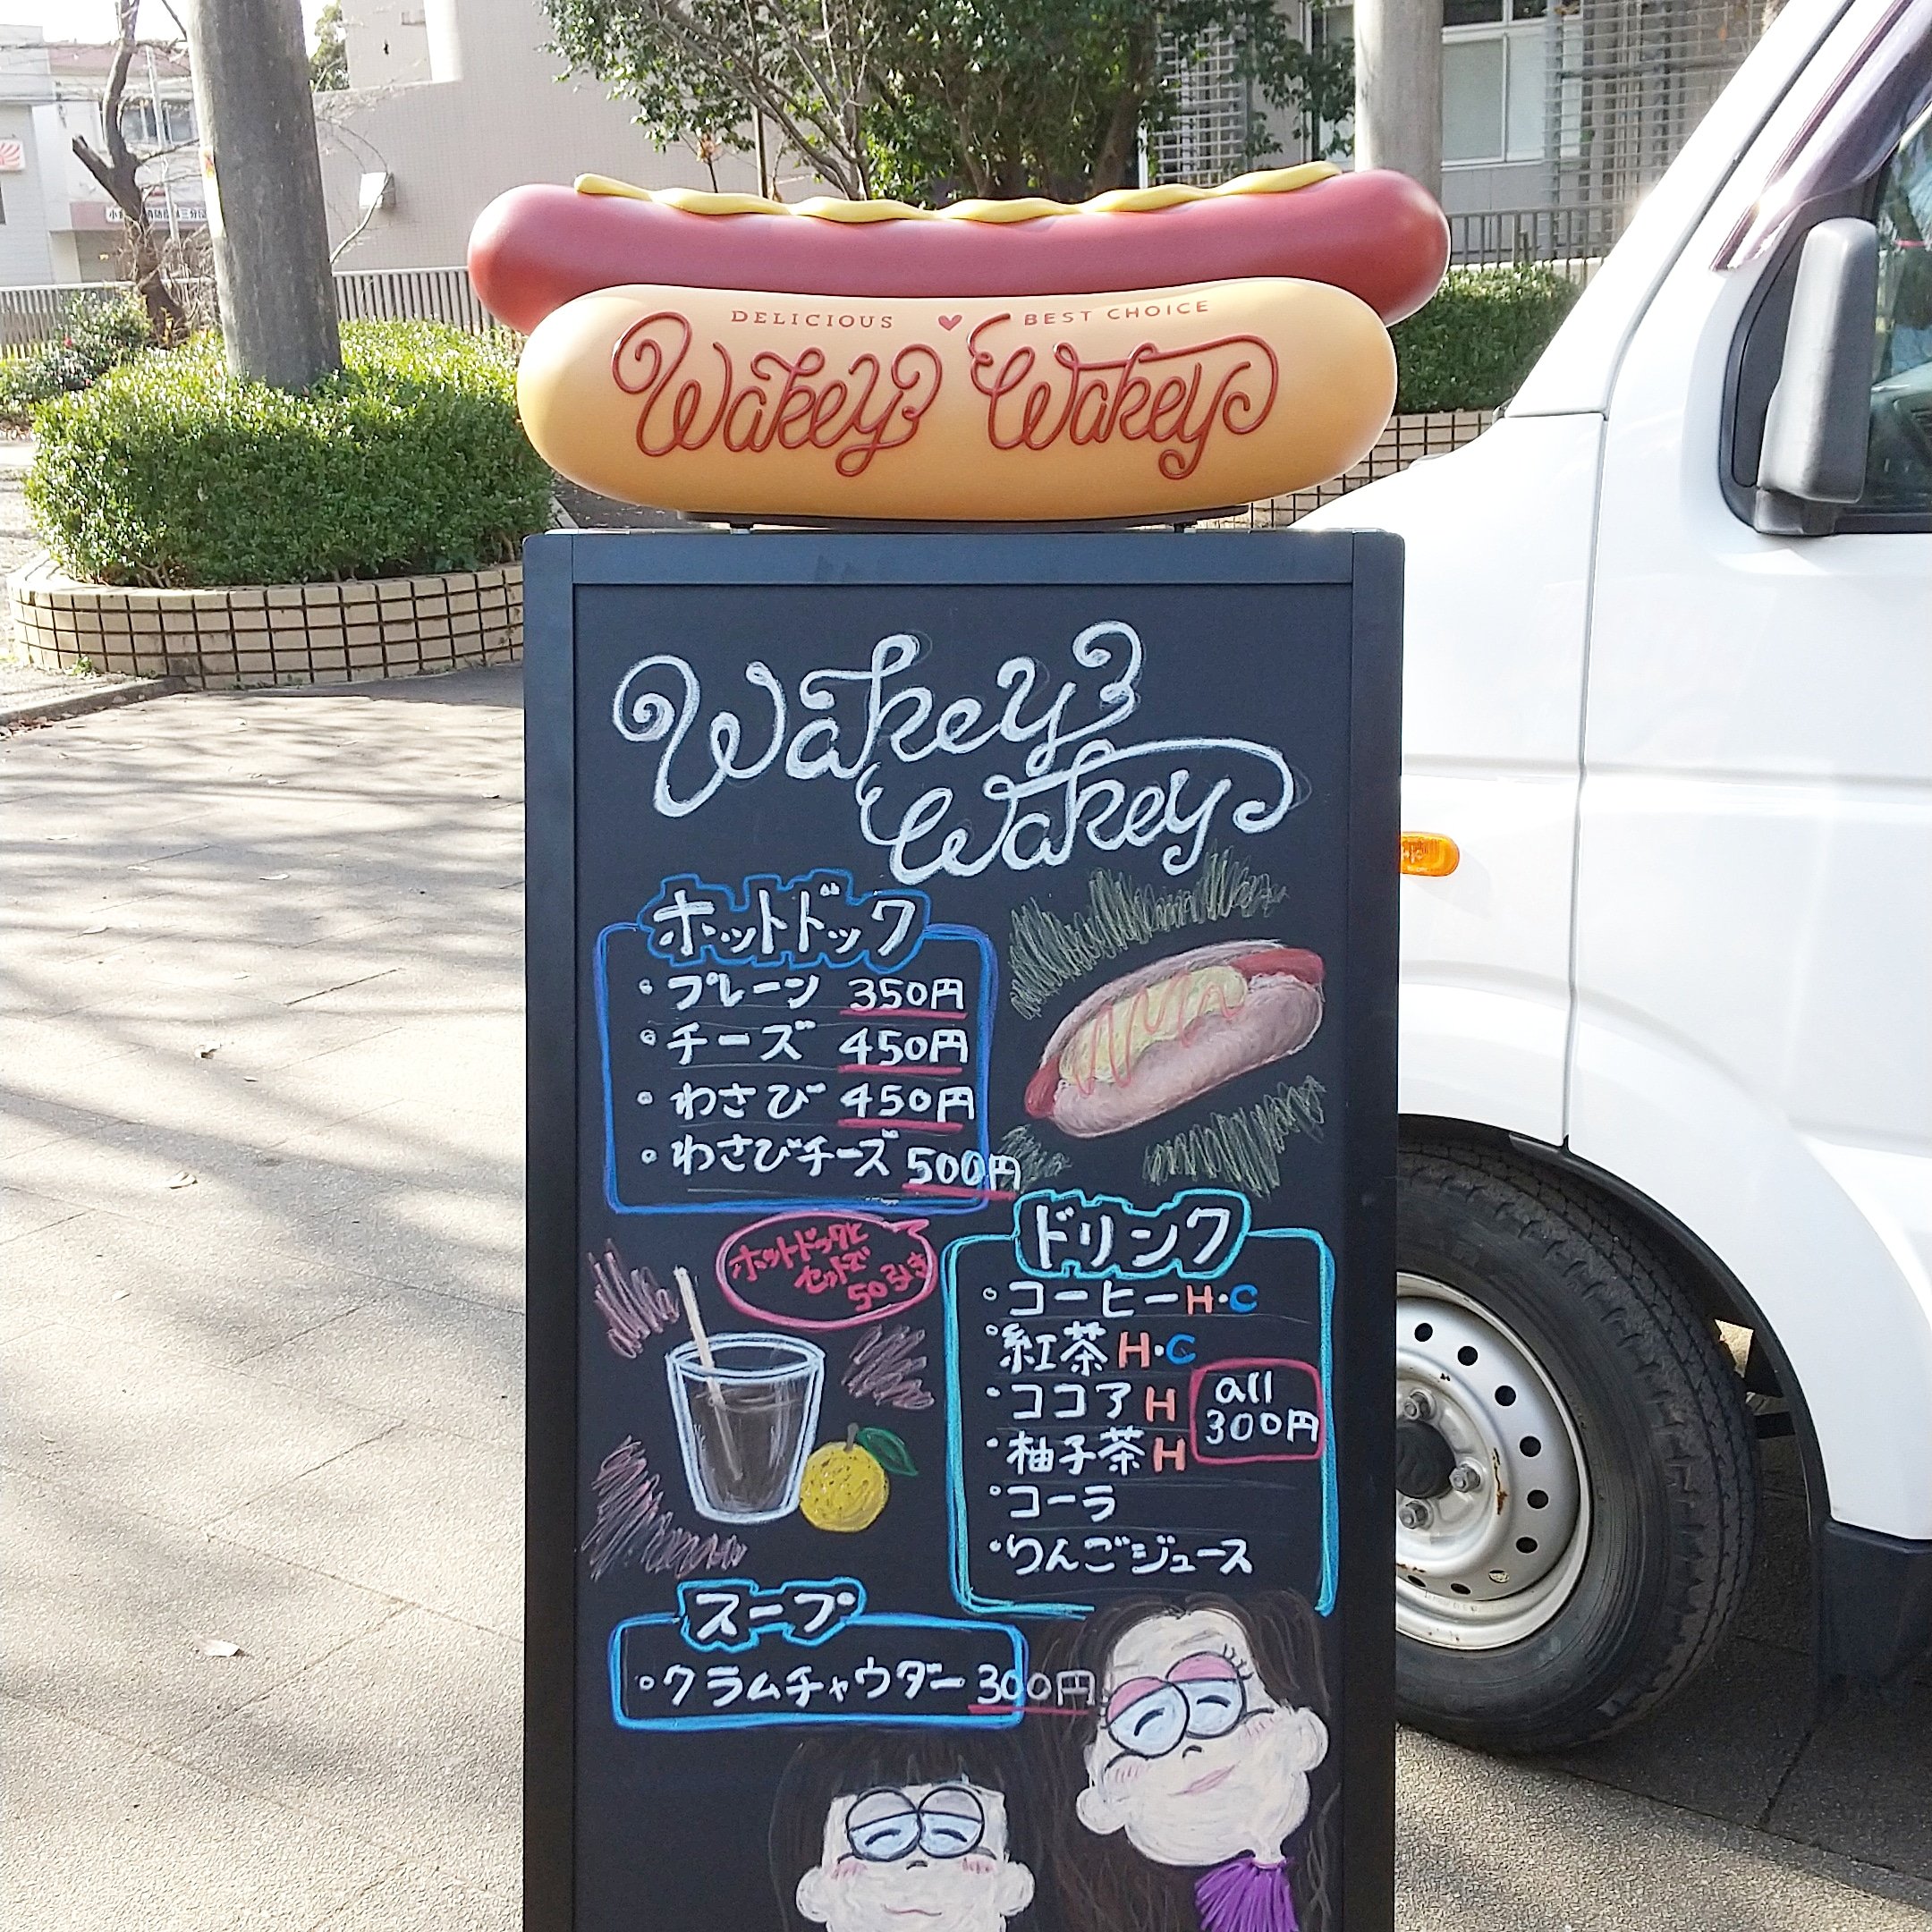 DELICIOUS ♥ BEST CHOICE
Wakey Wakey
Wakey
Wakey
ホットドック
・プレーン 350円
・チーズ 450円
・わさび 450円
・わさびチーズ 500円
ホットドックと
セットで
50引き
ドリンク
・コーヒーH・C
・紅茶H・C
・ココアH
・柚子茶H
all
300円
・コーラ
・りんごジュース
スープ
・クラムチャウダー 300円